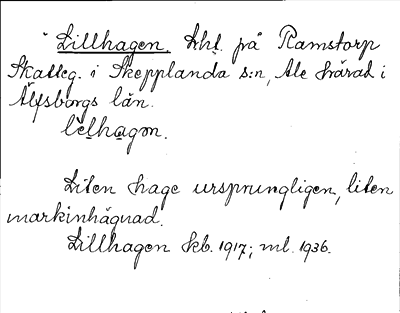 Lillhagen. Lht. på Ramstorp
Skatteg. i Skepplanda s:n, Ale härad i
Älfsborgs län.
lèlhagɷn.
Liten hage ursprungligen, liten
markinhägnad.
Lillhagen kb. 1917; ml. 1936.